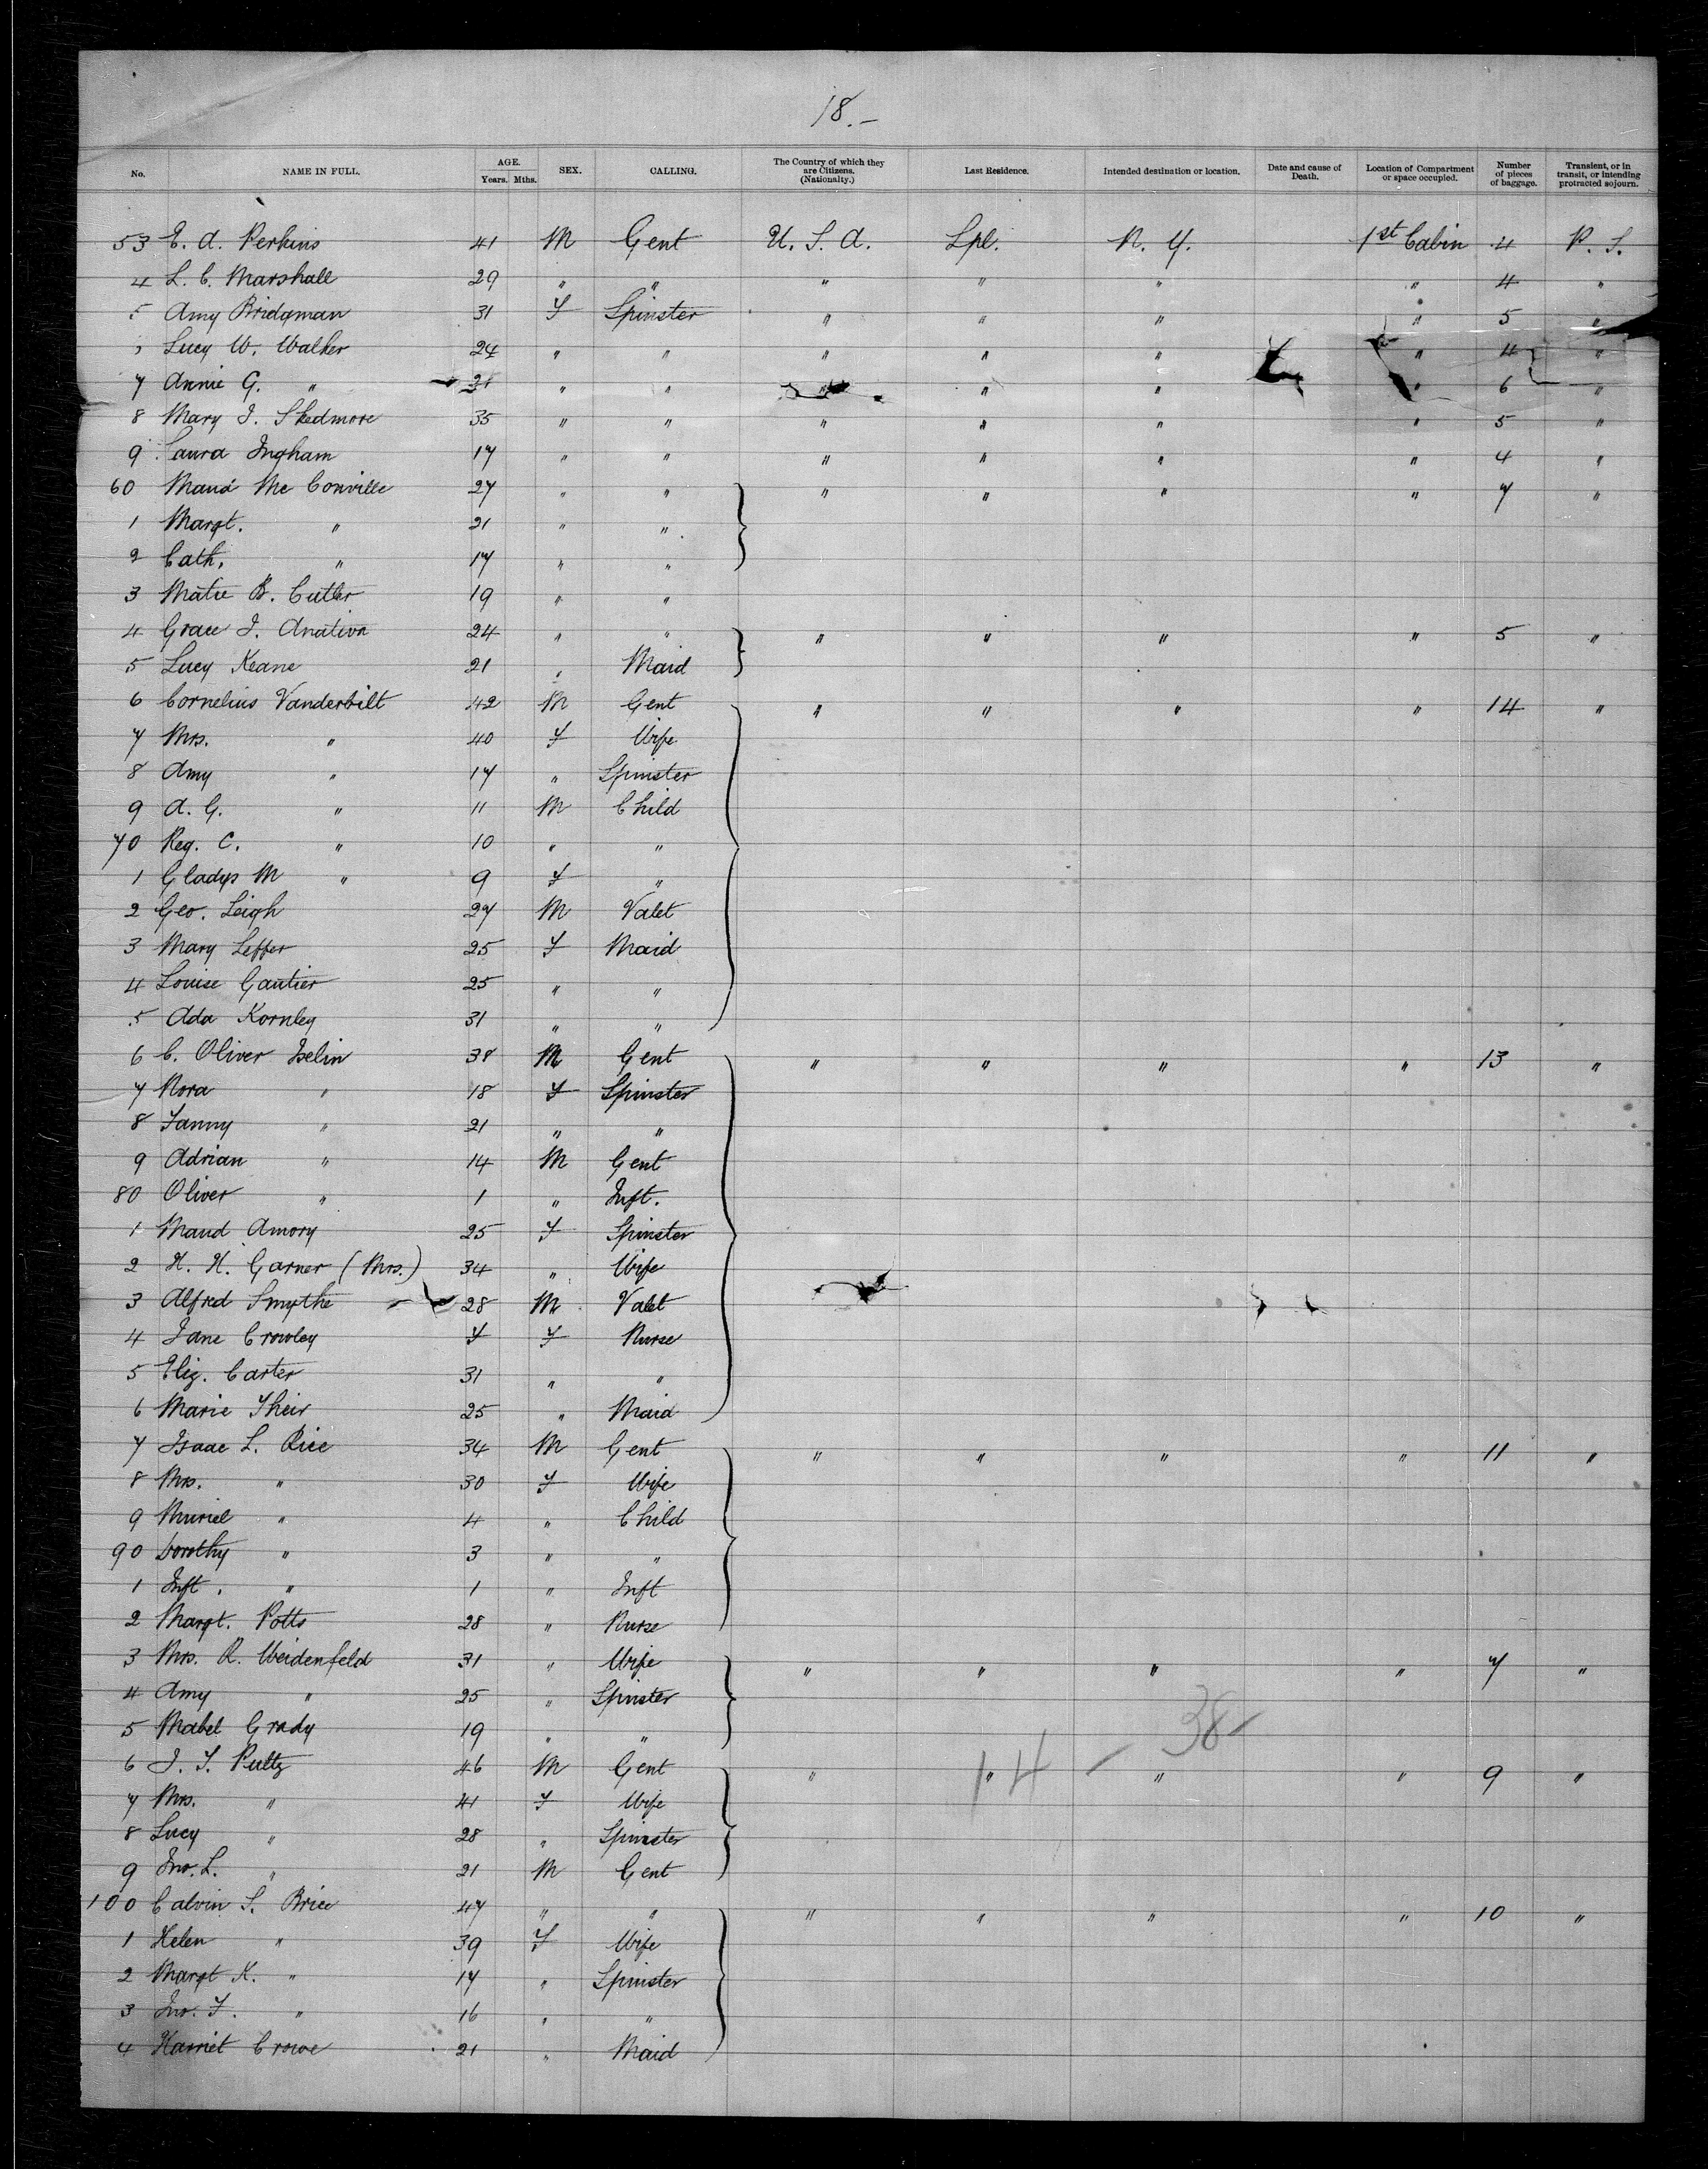 18.-
No. NAME IN FULL. AGE. Years. Mths. SEX. CALLING. The Country of which they are Citizens. (Nationalty.) Last Residence. Intended destination or location. Date and cause of Death. Location of Compartment or space occupied. Number of pieces of baggage. Transient, or in transit, or intending protracted sojourn.
53 E. A. Perkins 41 M Gent U. S. A. Lpl. N. Y. 1st Cabin 4 P. S.
4 L. C. Marshall 29 " " " " " " 4 "
5 Amy Bridgman 31 F Spinster " " " " 5 "
Lucy W. Walker 24 " " " " " " 4 "
7 Annie G. " 21 " " " " " 6 "
8 Mary J. Skedmore 35 " " " " " " 5 "
9 Laura Ingham 17 " " " " " " 4 "
60 Maud Mc Conville 27 " " " " " " 7 "
1 Margt. " 21 " "
2 Cath. " 17 " "
3 Matie B. Cutler 19 " "
4 Grace J. 24 " " " " " " 5 "
5 Lucy Keane 21 " Maid
6 Cornelius Vanderbilt 42 M Gent " " " " 14 "
7 Mrs. " 40 F Wife
8 Amy " 17 " Spinster
9 A. G. " 11 M Child
70 Reg. C. " 10 " "
1 Gladys M " 9 F "
2 Geo. Leigh 27 M Valet
3 Mary Leffer 25 F Maid
4 Louise Gautier 25 " "
5 Ada Kornley 31 " "
6 C. Oliver Iselin 38 M Gent " " " " 13 "
7 Nora " 18 F Spinster
8 Fanny " 21 " "
9 Adrian " 14 M Gent
80 Oliver " 1 " Inft.
1 Maud Amory 25 F Spinster
2 H. H. Garner (Mrs.) 34 " Wife
3 Alfred Smythe 28 M Valet
4 Jane Crowley F Nurse
5 Eliz. Carter 31 " "
6 Marie Their 25 " Maid
7 Isaac L. Rice 34 M Gent " " " " 11 "
8 Mrs. " 30 F Wife
9 Muriel " 4 " Child
90 Dorothy " 3 " "
1 Inft. " 1 " Inft
2 Margt. Potts 28 " Nurse
3 Mrs. R. Weidenfeld 31 " Wife " " " " 7 "
4 Amy " 25 " Spinster
5 Mabel Grady 19 " "
38-
6 J. F. Pultz 46 M Gent " " " " 9 "
14 -
7 Mrs. " 41 F Wife
8 Lucy " 28 " Spinster
9 Jno. L. " 21 M Gent
100 Calvin S. Brice 47 " " " " " " 10 "
1 Helen " 39 F Wife
2 Margt K. " 17 " Spinster
3 Jno. F. " 16 " "
4 Harriet Crowe 21 " Maid